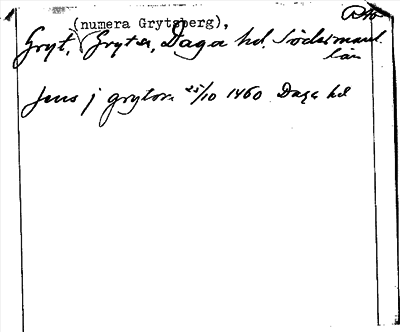 (numera Grytsberg),
Gryt, Gryta, Daga hd. Södermanl.
län
Jens j grytom 25/10 1460 Daga hd